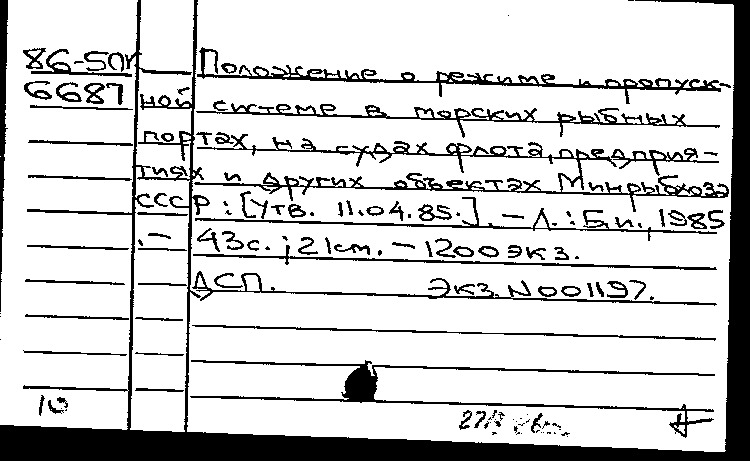 86-5ДК Положение о режиме и пропуск-
6687 ной системе в морских рыбных
портах, на судах флота, предприя-
тиях и других объектах Минрыбхоза
СССР : [Утв. 11.04.85.]. – Л. : Б.и., 1985
. – 43с. ; 21см. – 1200экз.
ДСП. Экз. N001197.
10